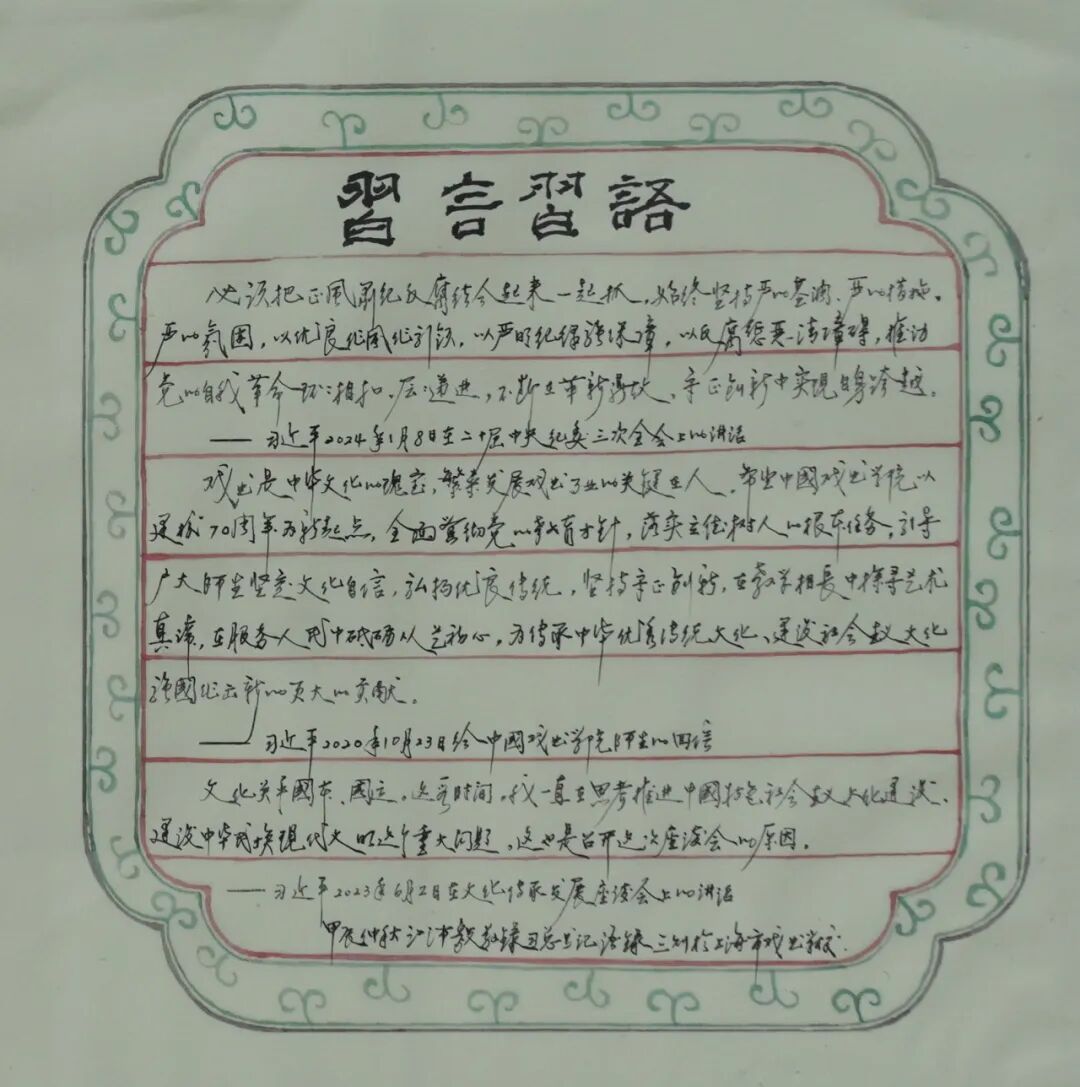 習言習語
必须把正风肃纪反腐结合起来一起抓，始终坚持严的基调、严的措施、
严的氛围，以优良作风作引领，以严明纪律强保障，以反腐惩恶清障碍，推动
党的自我革命环环相扣、层层递进，不断在革新易故、守正创新中实现自身跨越。
——习近平2024年1月8日在二十届中央纪委三次全会上的讲话
戏曲是中华文化的瑰宝，繁荣发展戏曲事业的关键在人。希望中國戏曲学院以
建校70周年为新起点，全面贯彻党的教育方针，落实立德树人的根本任务，引导
广大师生坚定文化自信，弘扬优良传统，坚持守正创新，在教学相長中探寻艺术
真谛，在服务人民中砥砺从艺初心，为传承中华优秀传统文化、建设社会主义文化
强國作出新的更大的贡献。
——习近平2020年10月23日给中國戏曲学院师生的回信
文化关乎國本、國运。这段时间，我一直在思考推进中國特色社会主义文化建设、
建设中华民族现代文明这个重大问题，这也是召开这次座谈会的原因。
——习近平2023年6月2日在文化传承发展座谈会上的讲话
甲辰仲秋 敬录习总书记语录三则於上海市戏曲学校